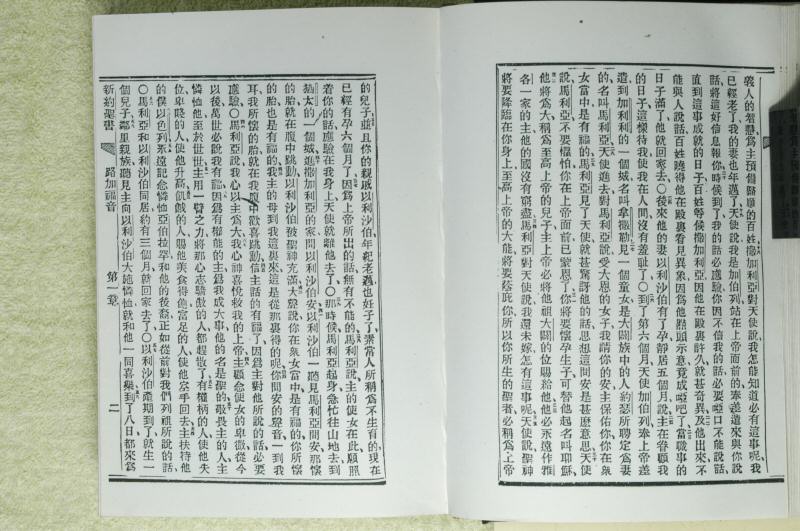 義人的智慧爲主預備整頓的百姓撒加利亞對天使說我怎能知道必有這事呢我
已經老了我的妻也年邁了天使說我是加伯列站在上帝面前的奉差遣來與你說
話將這好信息報你時候到了我的話必應驗你因不信我的話必要啞口不能說話
直到這事成就的日子百姓等候撒加利亞因他在殿裏許久就甚奇異及他出來不
能與人說話百姓曉得他在殿裏看見異象因爲他點頭示意竟成啞吧了當職事的
日子滿了他就回家去〇後來他的妻以利沙伯有了孕靜居五個月說主在眷顧我
的日子這樣待我使我在人間沒有羞耻了〇到了第六個月天使加伯列奉上帝差
遣到加利利的一個城名叫拿撒勒見一個童女是大闢族中的人約瑟所聘定爲妻
的名叫馬利亞天使進去對馬利亞說受大恩的女子我請你的安主保佑你你在衆
女當中是有福的馬利亞見了天使就甚驚訝他的話思想這問安是甚麼意思天使
說馬利亞不要懼怕你在上帝面前已蒙恩了你將要懷孕生子可替他起名叫耶穌
他將爲大稱爲至高上帝的兒子主上帝必將他祖大闢的位賜給他他必永遠作雅
各一家的主他的國沒有窮盡馬利亞對天使說我還未嫁怎有這事呢天使說聖神
將要降臨在你身上至高上帝的大能將要蔭庇你所以你所生的聖者必稱爲上帝
的兒子並且你的親戚以利沙伯年紀老邁也妊子了素常人所稱爲不生育的現在
已經有孕六個月了因爲上帝所出的話無有不能的馬利亞說主的使女在此願照
着你的話應驗在我身上天使就離他去了〇那時候馬利亞起身急忙往山地去到
猶太的一個城進撒加利亞的家問以利沙伯安以利沙伯一聽見馬利亞問安那懷
的胎就在腹中跳動以利沙伯被聖神充滿大聲說你在衆女當中是有福的你所懷
的胎也是有福的我主的母到我這裏來這是從那裏得的呢你問安的聲音一到我
耳我所懷的胎就在我腹中歡喜跳動信主話的有福了因爲主對他所說的話必要
應驗〇馬利亞說我心以主爲大我心神喜悅救我的上帝主顧念使女的卑微從今
以後萬世必說我有福因爲有權能的主爲我成大事他的名是聖的敬畏主的人主
憐恤他至於世世主用一臂之力將那心志驕傲的人都趕散了有權柄的人使他失
位卑賤的人使他升高飢餓的人賜他美食得飽富足的人使他空手回去主扶持他
的僕以色列永遠記念憐恤亞伯拉罕和他的後裔正如從前對我們列祖所說的話
〇馬利亞和以利沙伯同居約有三個月就回家去了〇以利沙伯產期到了就生一
個兒子鄰里親族聽見主向以利沙伯大施憐恤就和他一同喜樂到了八日都來爲
新約聖書 路加福音 第一章 二